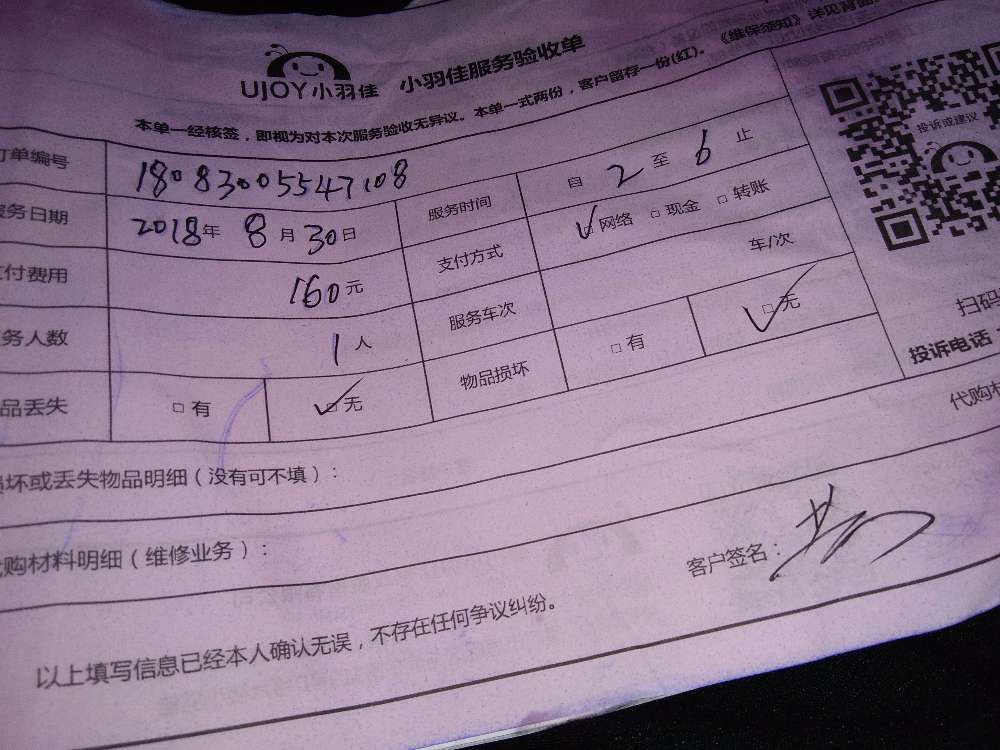 UJOY小羽佳 小羽佳服务验收单
本单一经核签，即视为对本次服务验收无异议。本单一式两份，客户留存一份(红)。《维保须知》详见背面。
订单编号 18083005547108 服务时间 自 2 至 6 止
服务日期 2018年 8月 30日 支付方式 ☑网络 □现金 □转账
支付费用 160元 服务车次 车/次
务人数 1人 物品损坏 □有 ☑无
品丢失 □有 ☑无
投诉或建议
扫码
投诉电话：
损坏或丢失物品明细（没有可不填）：
代购材
代购材料明细（维修业务）：
客户签名：
以上填写信息已经本人确认无误，不存在任何争议纠纷。